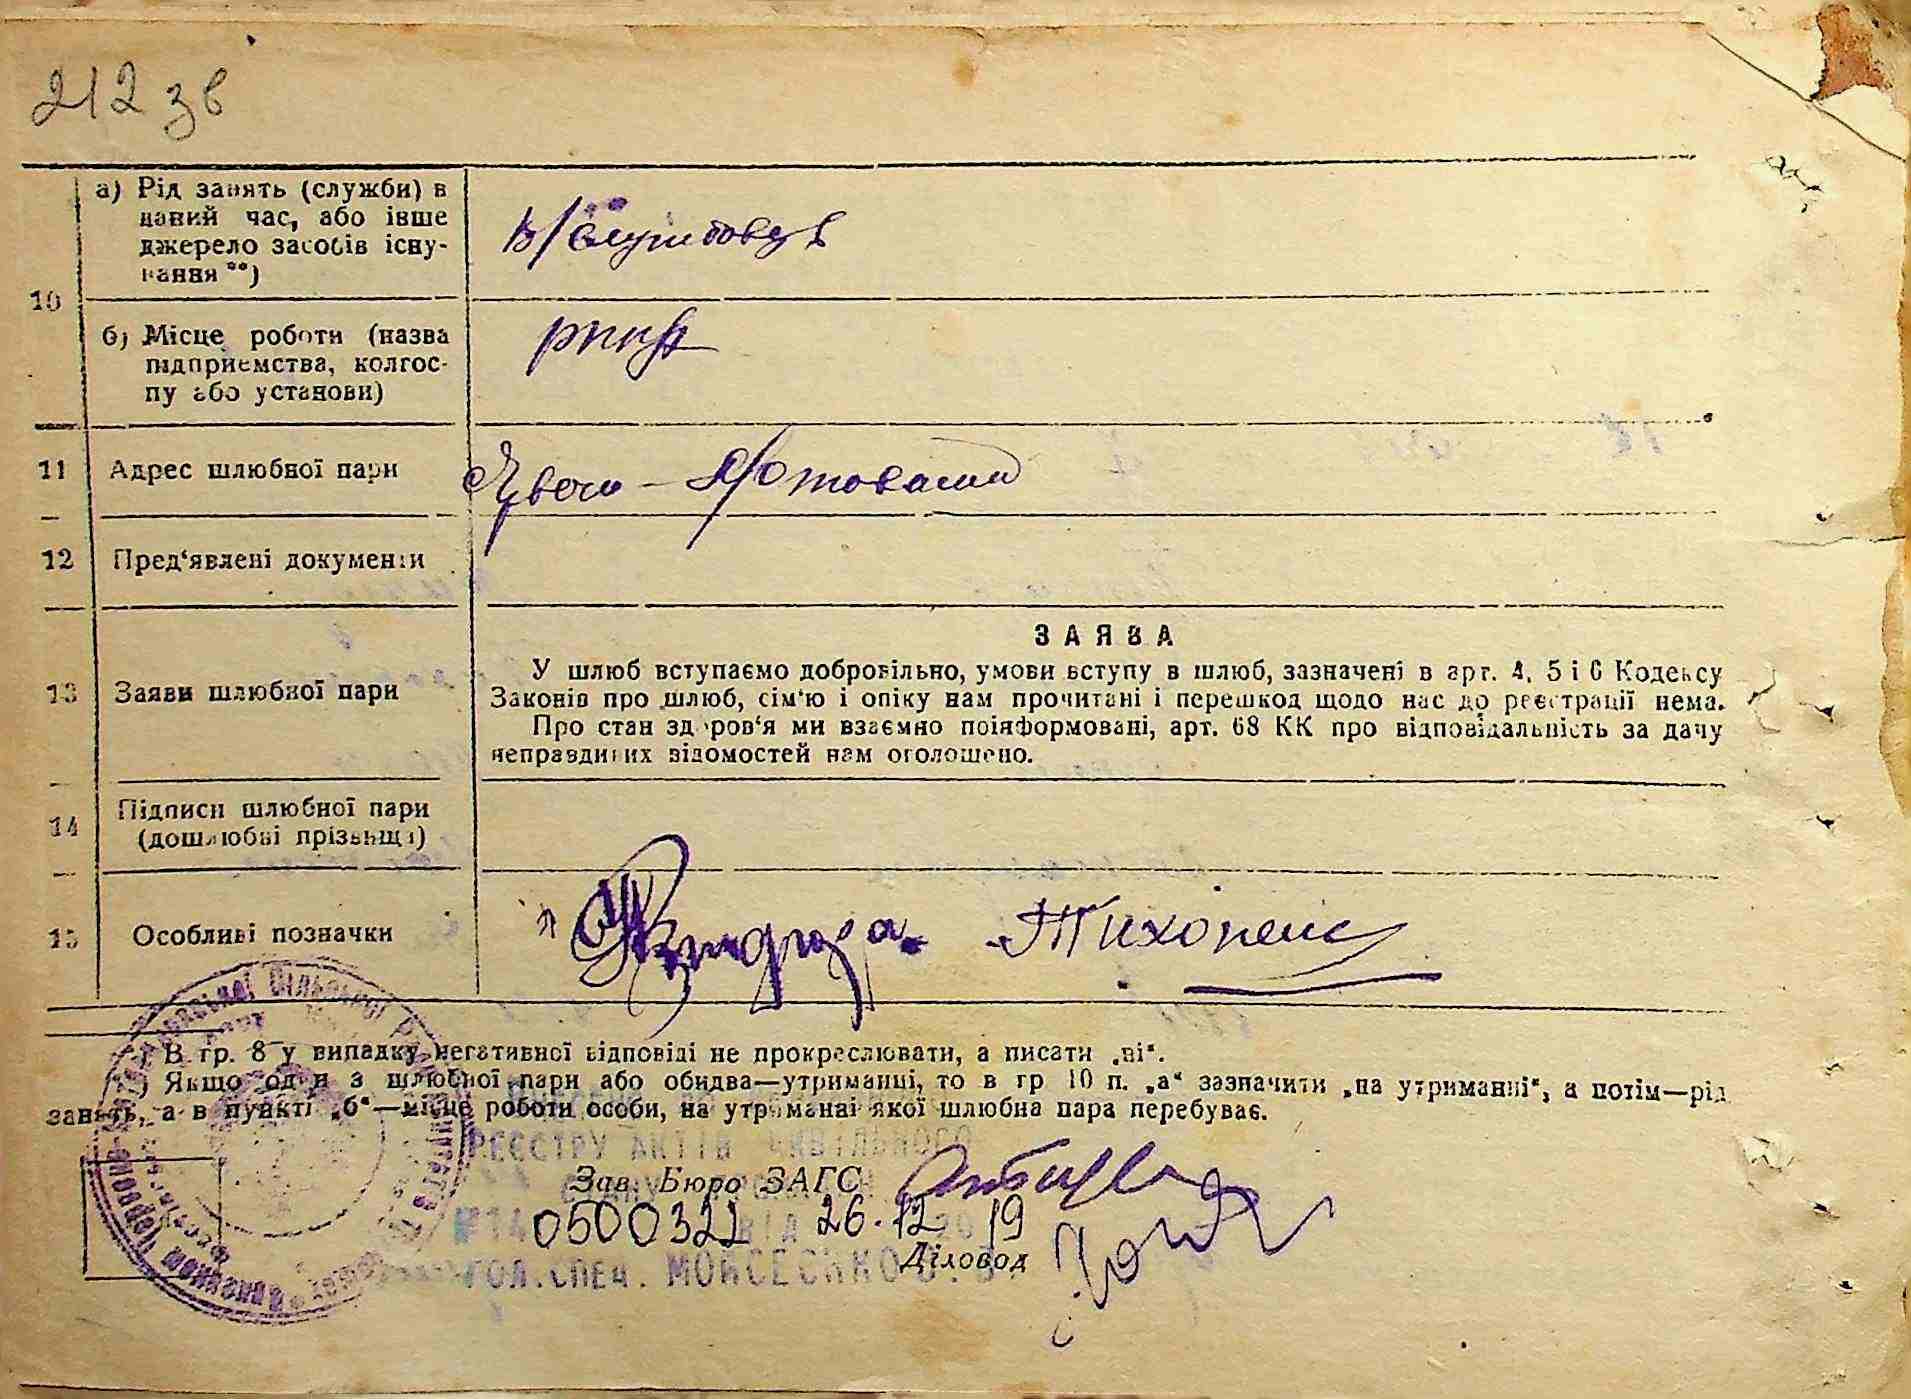 212 зв
а) Рід занять (служби) в
даний час, або інше
джерело засобів існу-
вання **)
В/службовець
10
РККА
б) Місце роботи (назва
підприємства, колгос-
пу або установи)
11 Адрес шлюбної пари
12 Пред'явлені документи
ЗАЯВА
У шлюб вступаємо добровільно, умови вступу в шлюб, зазначені в арт. 4, 5 і 6 Кодексу
13 Заяви шлюбної пари
Законів про шлюб, сім'ю і опіку нам прочитані і перешкод щодо нас до реєстрації нема.
Про стан здоров'я ми взаємно поінформовані, арт. 68 КК про відповідальність за дачу
неправдивих відомостей нам оголошено.
14 Підписи шлюбної пари
(дошлюбні прізвища)
15 Особливі позначки
*) В гр. 8 у випадку негативної відповіді не прокреслювати, а писати „ні“.
**) Якщо один з шлюбної пари або обидва—утриманці, то в гр 10 п. „а“ зазначити „на утриманні“, а потім—рід
занять, а в пункті „б“—місце роботи особи, на утриманні якої шлюбна пара перебуває.
РЕЄСТРУ АКТІВ ЦИВІЛЬНОГО
Зав. Бюро ЗАГС
0500322 26.12 19
Діловод
ГОЛ.СПЕЦ. МОЙСЕЄНКО